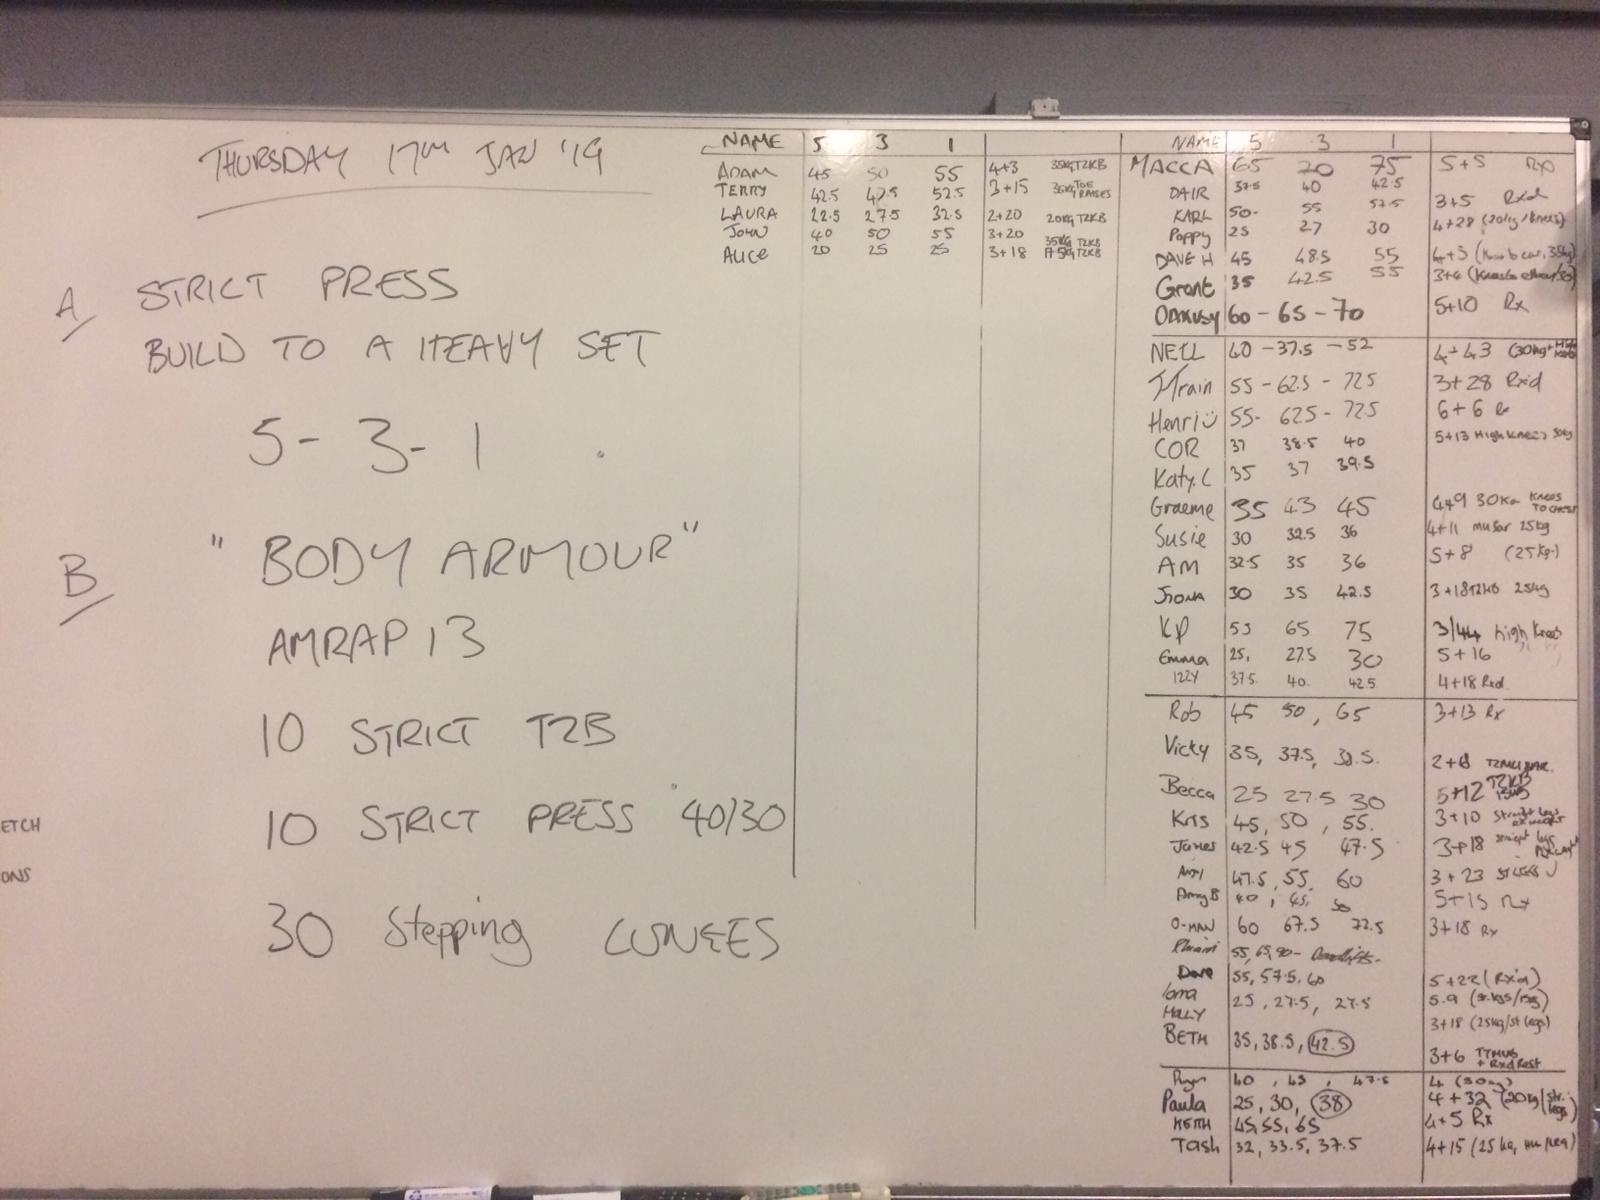 THURSDAY 17TH JAN '19
A STRICT PRESS
BUILD TO A HEAVY SET
5- 3- 1
B "BODY ARMOUR"
AMRAP 13
10 STRICT T2B
10 STRICT PRESS 40/30
30 Stepping LUNGES
ETCH
ONS
NAME 5 3 1
ADAM 45 50 55 4+3 35KG T2KB
TERRY 42.5 47.5 52.5 3+15 TOE RAISES
LAURA 22.5 27.5 32.5 2+20 20KG T2KB
JOHN 40 50 55 3+20 35KG T2KB
ALICE 20 25 25 3+18 T2KB
NAME 5 3 1
MACCA 65 70 75 5+5 Rx
DAIR 37.5 40 42.5 3+5 Rxd
KARL 50- 55 57.5
Poppy 25 27 30 4+28 (20kg/knees)
DAVE H 45 48.5 55 4+5
Grant 35 42.5 55 3+6
60-65-70 5+10 Rx
NEIL 40 -37.5 -52 4+43
J-Train 55-62.5-72.5 3+28 Rx'd
Henri 55- 62.5-72.5 6+6 Rx
COR 37 38.5 40 5+13 High Knees 30kg
Katy.C 35 37 39.5
Graeme 35 43 45 4+9 30KG KNEES TO CHEST
Susie 30 32.5 36 4+11 25kg
AM 32.5 35 36 5+8 (25kg.)
30 35 42.5 3+18 T2KB 25kg
KP 55 65 75 3/44 high knees
Emma 25, 27.5 30 5+16
IZZY 37.5. 40. 42.5 4+18 Rxd.
Rob 45 50, 65 3+13 Rx
Vicky 35, 37.5, 38.5. 2+8
Becca 25 27.5 30 5+12 T2KB
Kris 45, 50, 55. 3+10 Straight legs
James 42.5 45 47.5 3+18 straight legs
47.5, 55, 60 3+23
Amy B 40, 45, 50 5+15 Rx
O-MAN 60 67.5 72.5 3+18 Rx
Dave 55, 57.5, 60 5+22 (Rx'd)
Lorna 25, 27.5, 27.5 5.9 (st.legs/15kg)
MOLLY 3+18 (25kg/st legs)
BETH 35, 38.5, 42.5 3+6 + Rxd Rest
40, 45, 47.5 4 (30kg)
Paula 25, 30, 38 4+32 (20kg/str. legs)
KEITH 45, 55, 65 4+5 Rx
Tash 32, 33.5, 37.5 4+15